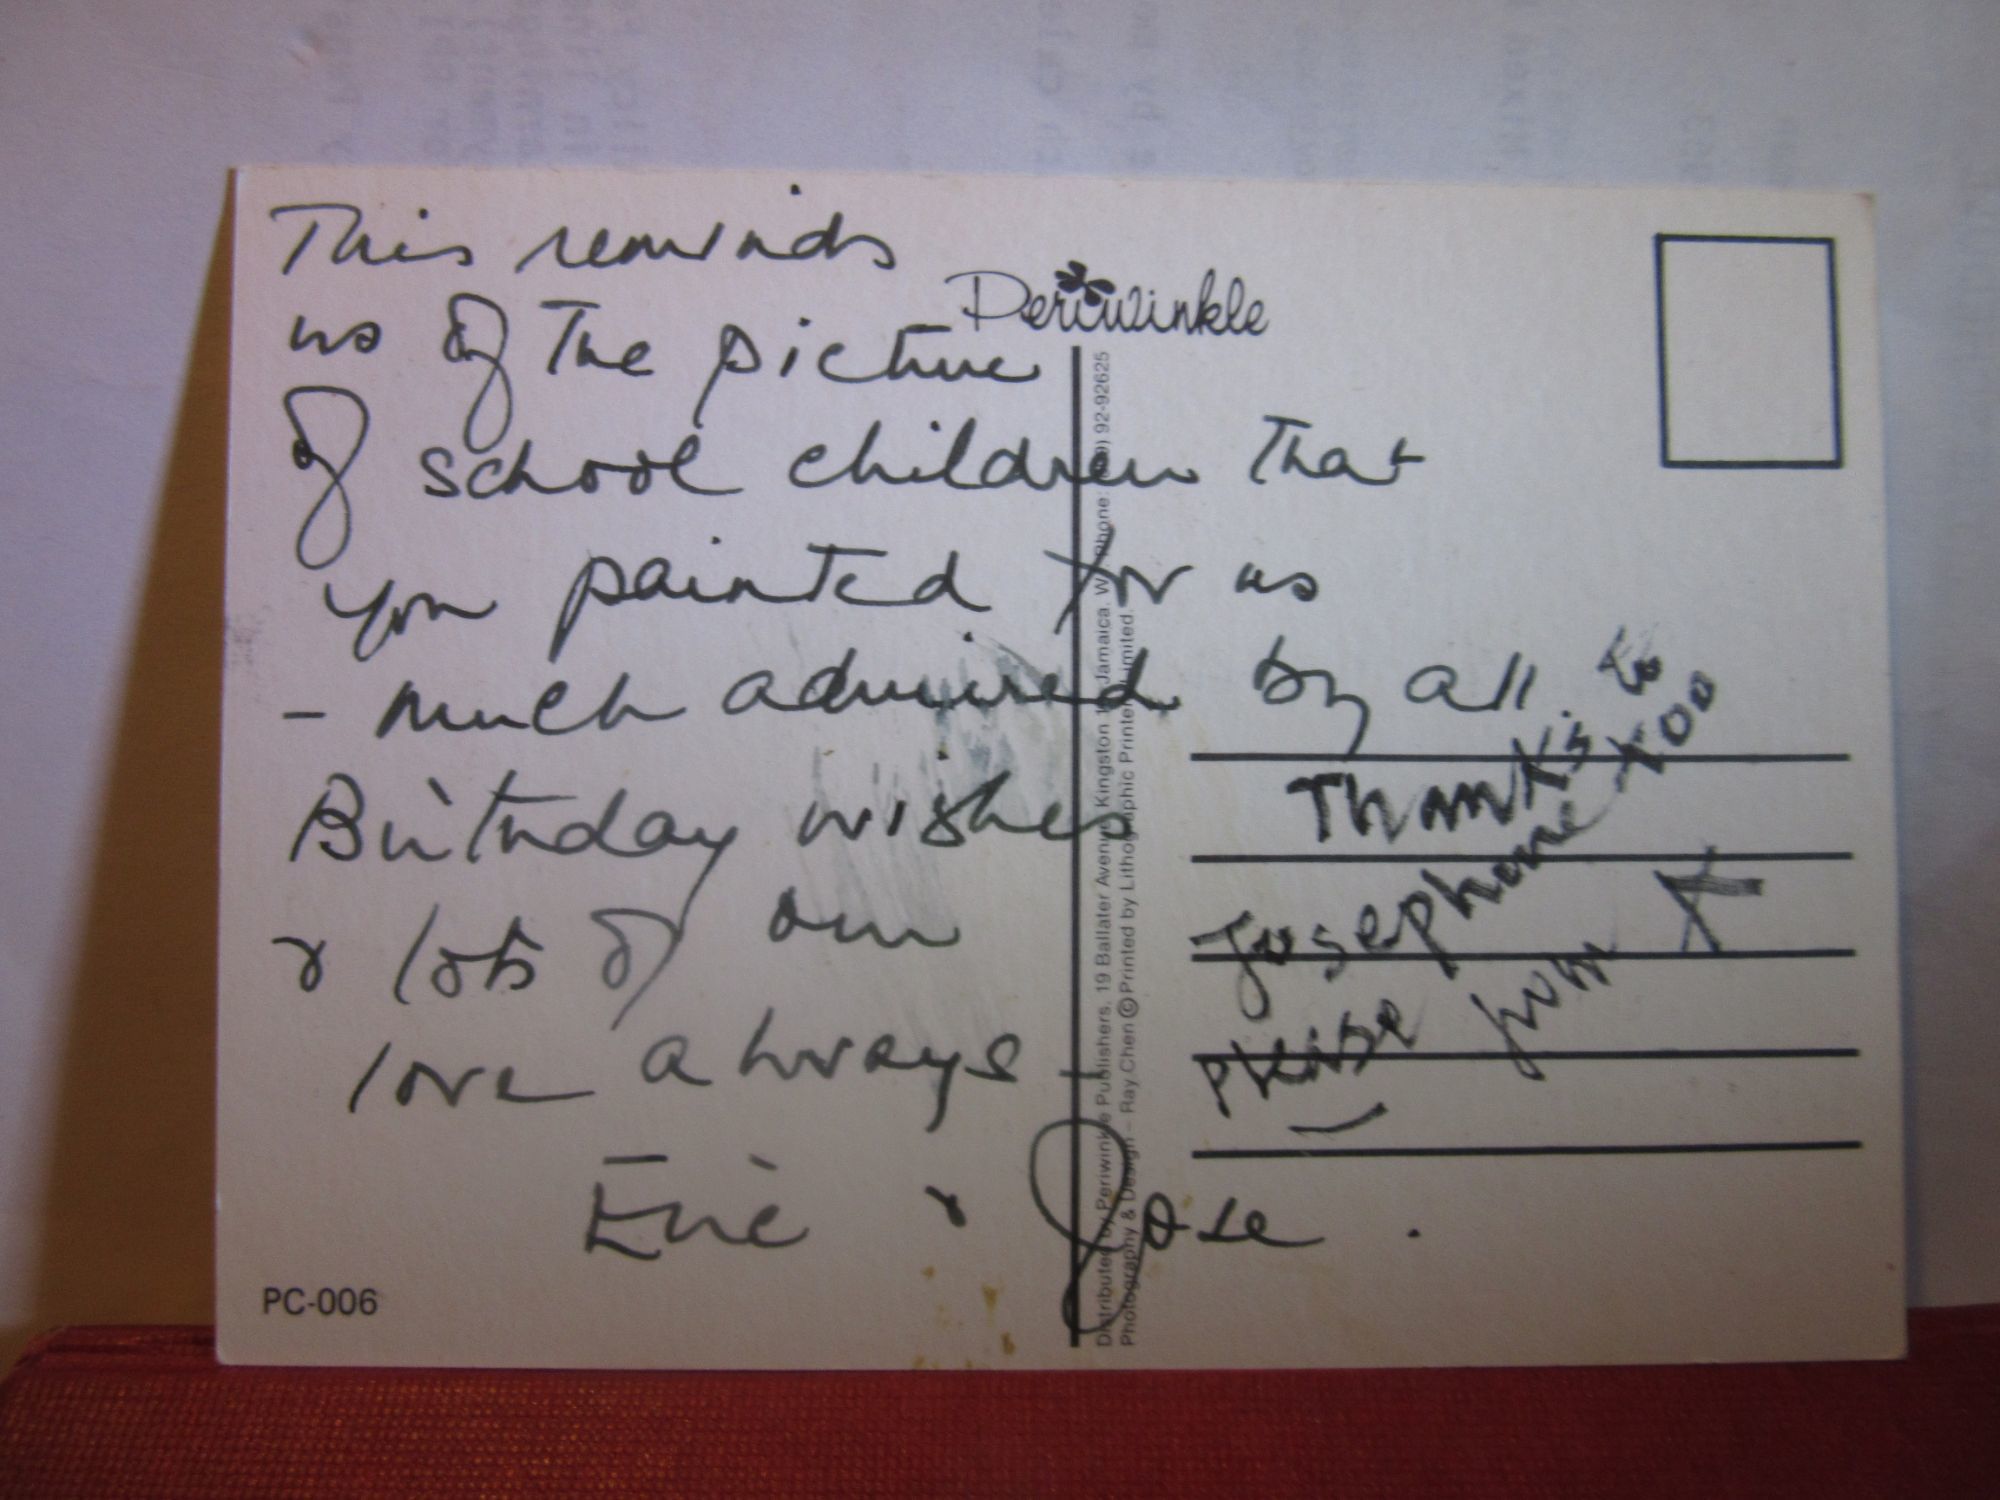 This reminds
us of The picture
of school children That
you painted for us
- much admired by all.
Birthday wishes
& lots of our
love always -
Eric & Jose.
Periwinkle
Distributed by Periwinkle Publishers, 19 Ballater Avenue, Kingston 10, Jamaica. W.I. Phone: (809) 92-92625
Photography & Design – Ray Chen © Printed by Lithographic Printers Limited.
Thanks to
Josephone too
please
PC-006